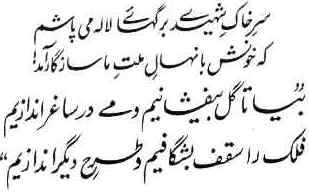 سرِ خاکِ شہیدے برگہائے لالہ می پاشم
کہ خونش با نہالِ ملتِ ما سازگار آمد!
”بیا تا گل بیفشانیم و مے در ساغر اندازیم
فلک را سقف بشگافیم و طرحِ دیگر اندازیم“